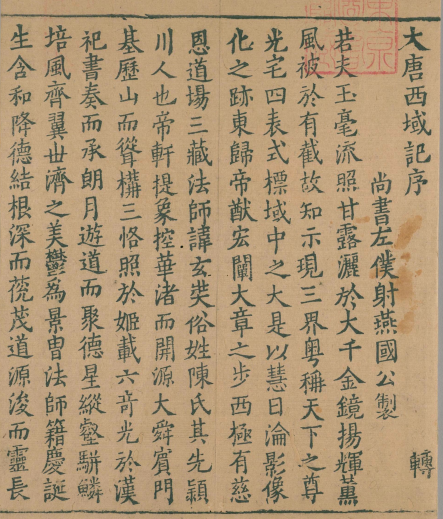 大唐西域記序 轉
尚書左僕射燕國公製
若夫玉毫流照甘露灑於大千金鏡揚輝薰
風被於有截故知示現三界粵稱天下之尊
光宅四表式標域中之大是以慧日淪影像
化之跡東歸帝猷宏闡大章之步西極有慈
恩道場三藏法師諱玄奘俗姓陳氏其先潁
川人也帝軒提象控華渚而開源大舜賓門
基歷山而聳構三恪照於姬載六奇光於漢
祀書奏而承朗月遊道而聚德星縱壑駢鱗
培風齊翼世濟之美鬱為景冑法師籍慶誕
生含和降德結根深而茂道源浚而靈長